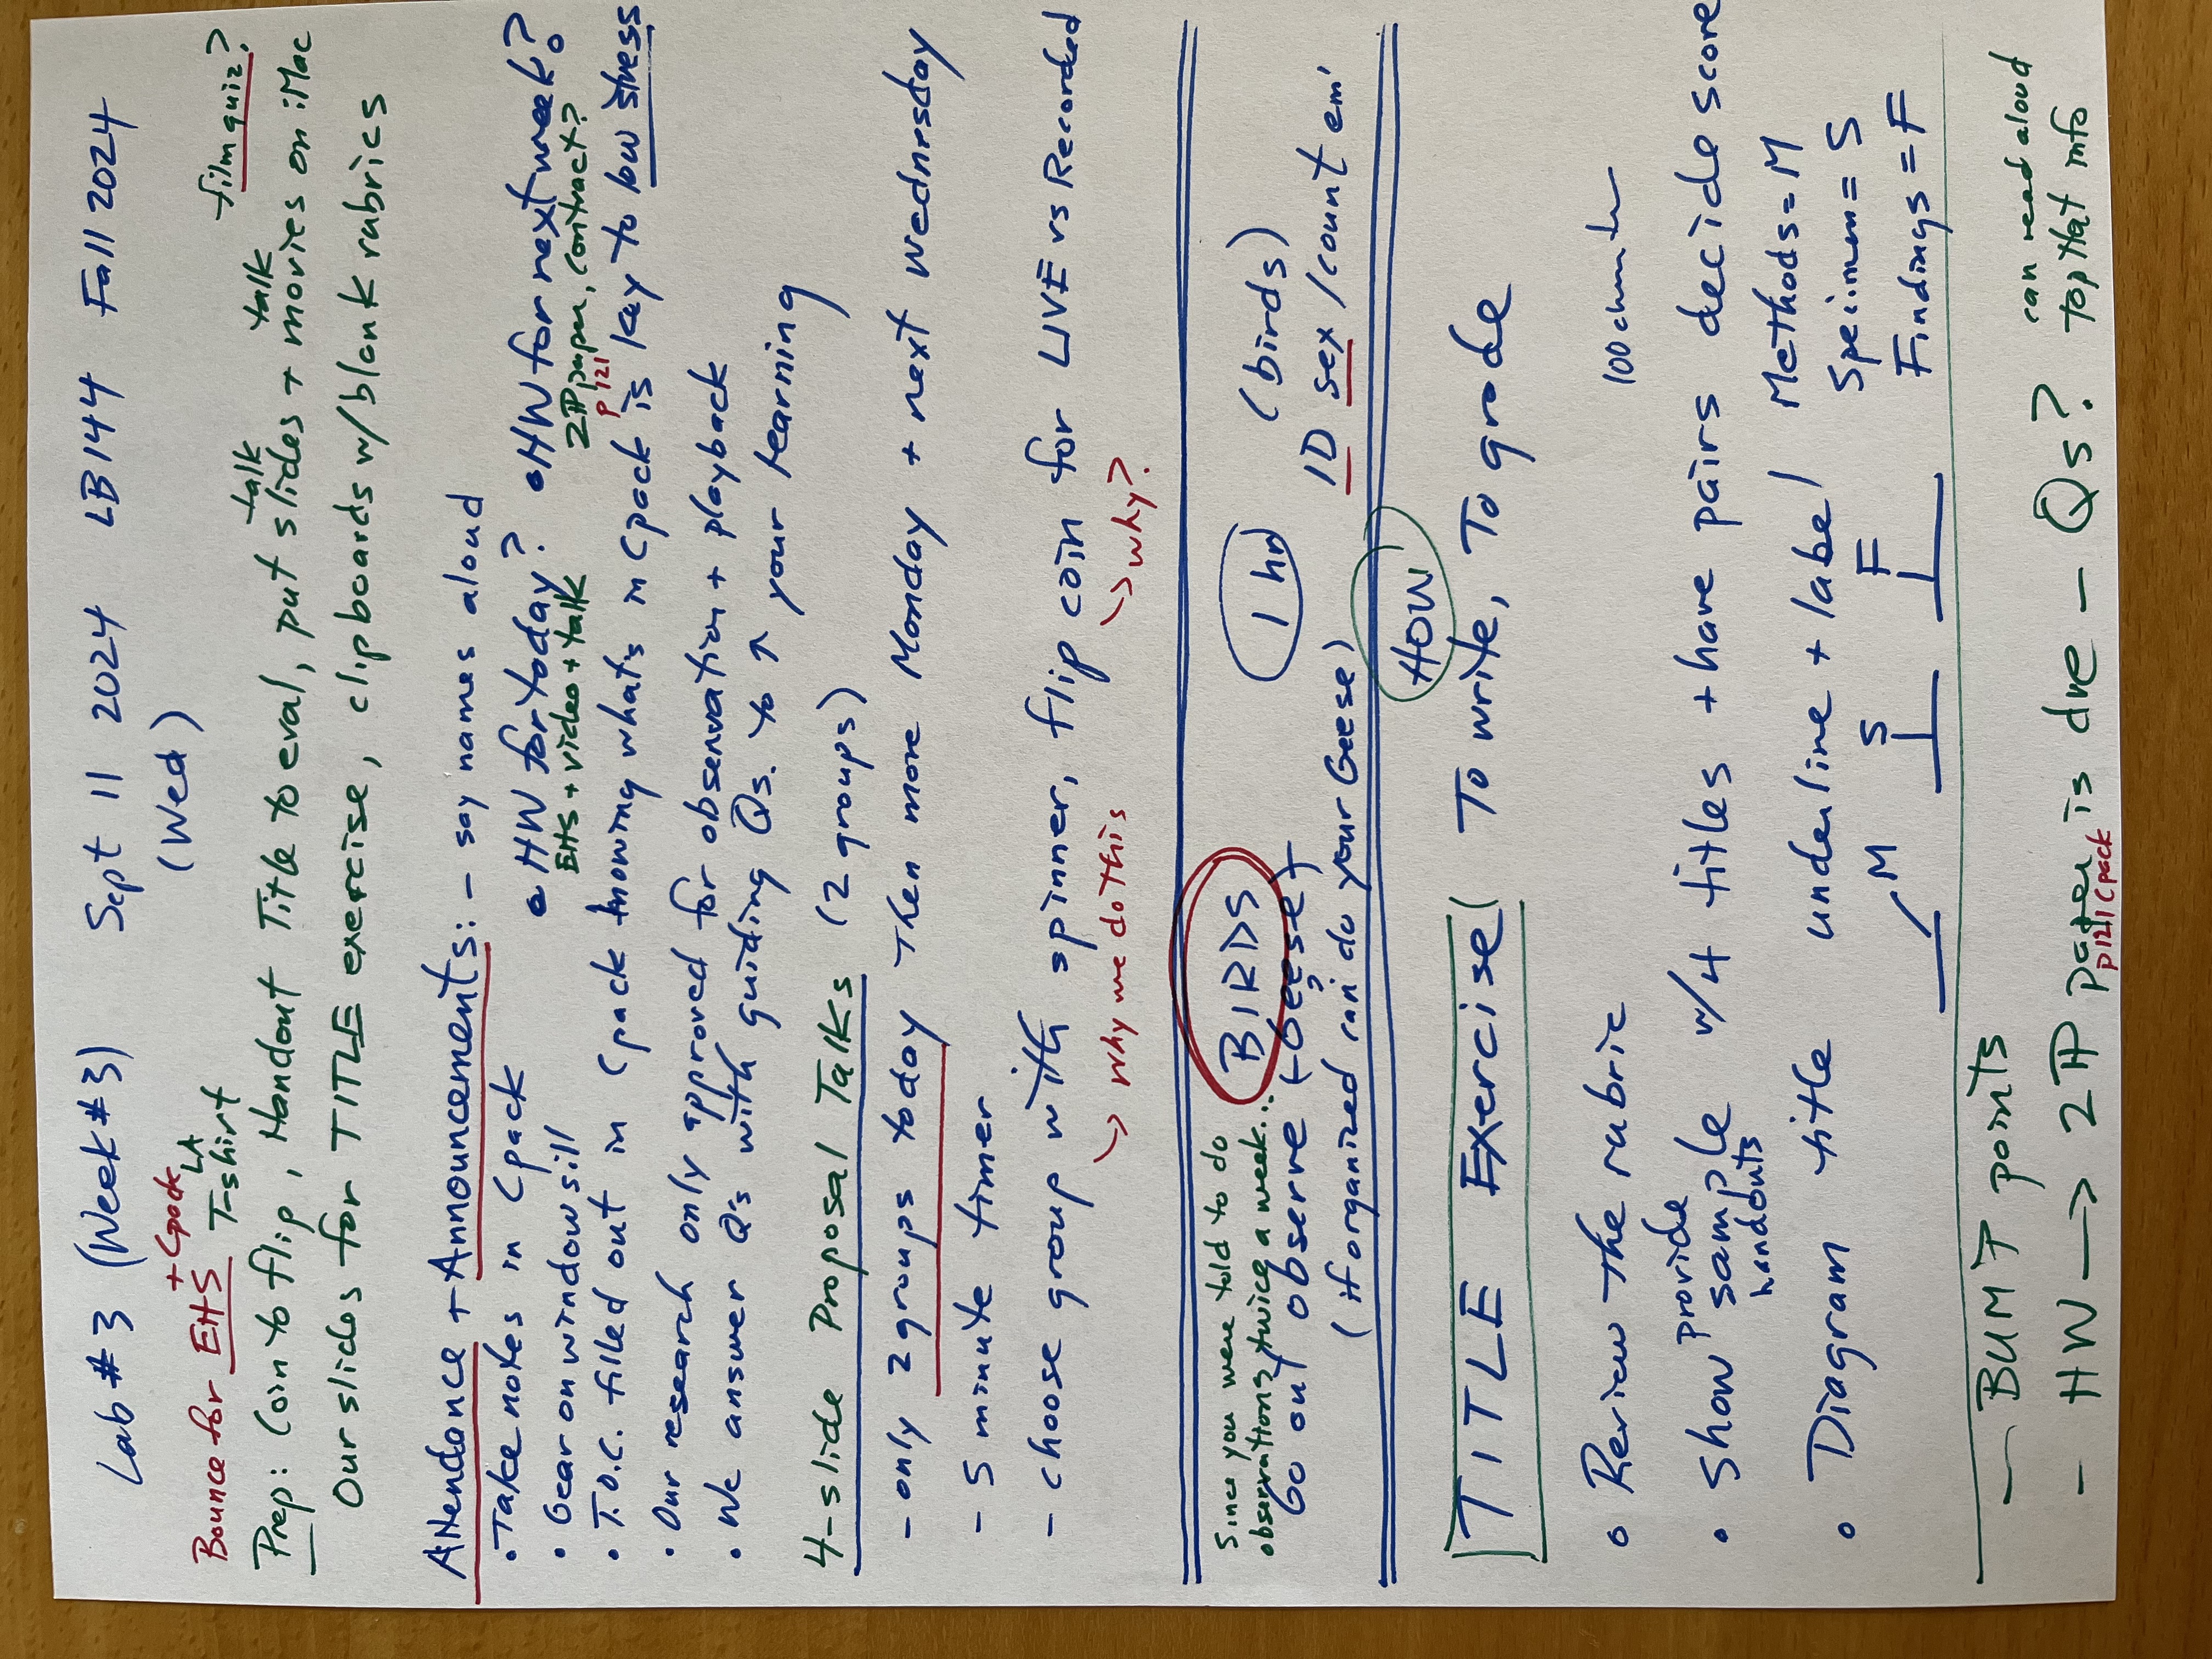 Lab #3 (Week #3) Sept 11 2024 LB144 Fall 2024
(Wed)
Bounce for EHS + Cpack LA T-shirt
talk talk film quiz?
Prep: Coin to flip, Handout Title to eval, put slides + movies on iMac
Our slides for TITLE exercise, clipboards w/blank rubrics
Attendance + Announcements: - say names aloud
• Take notes in Cpack • HW for today? • HW for next week?
EHS + video + talk 2¶ paper, contract?
p121
• Gear on windowsill
• T.O.C. filled out in Cpack knowing what's in Cpack is key to low stress
• Our research only approved for observation + playback
• We answer Q's with guiding Qs. to ↑ your learning
4-slide Proposal Talks (2 groups)
- only 2 groups today Then more Monday + next Wednesday
- 5 minute timer
- choose group with spinner, flip coin for LIVE vs Recorded
→ why we do this → why?
Since you were told to do
observations twice a week...
BIRDS 1 hr (birds)
Go out observe (Geese) ID sex/count em'
(if organized can do your Geese)
HOW
TITLE Exercise To write, To grade
• Review the rubric
• Show provide sample w/4 titles + have pairs decide score
handouts
• Diagram title underline + label Methods = M
Speimen = S
Findings = F
M S F
- BUMT points
- HW → 2¶ paper is due - Qs? can read aloud
top that info
p121 Cpack